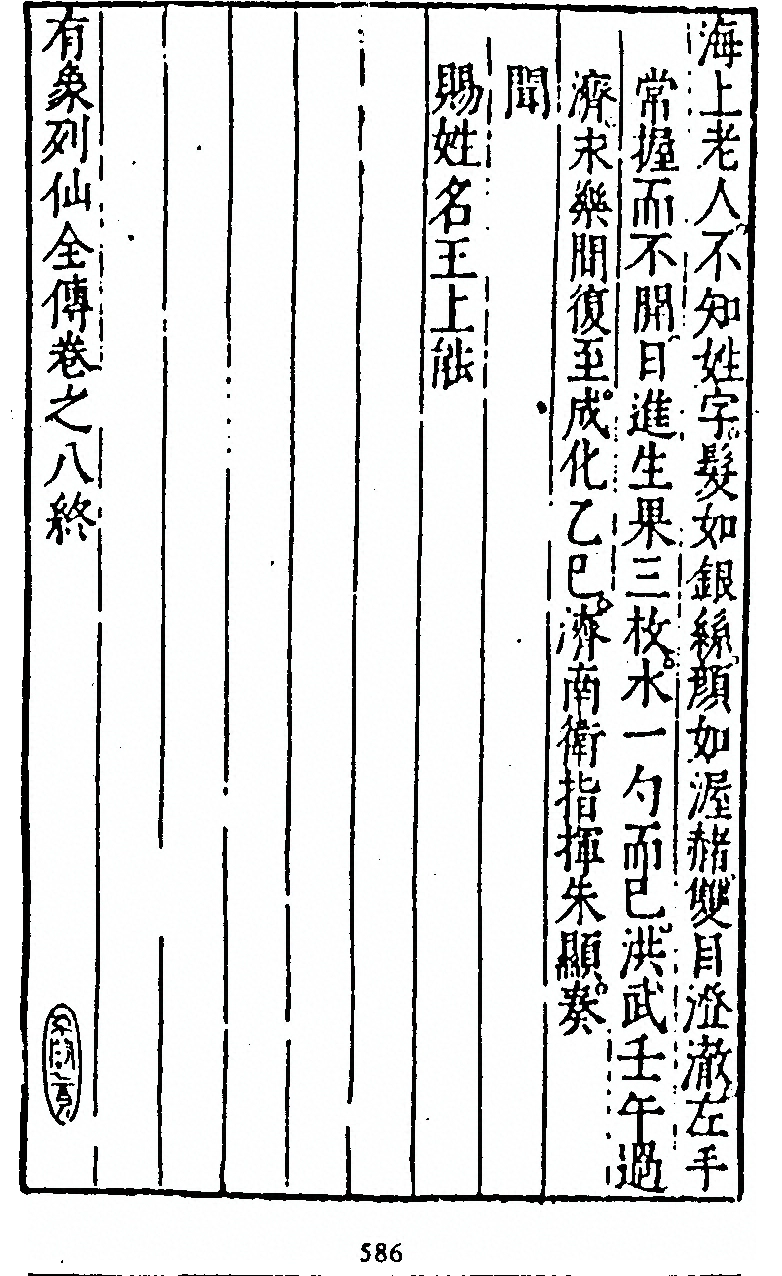 海上老人不知姓字髮如銀絲顏如渥赭雙目澄澈左手
常握而不開日進生果三枚水一勺而已洪武壬午過
濟永樂間復至成化乙巳濟南衛指揮朱顯奏
聞
賜姓名王上能
有象列仙全傳卷之八終
586